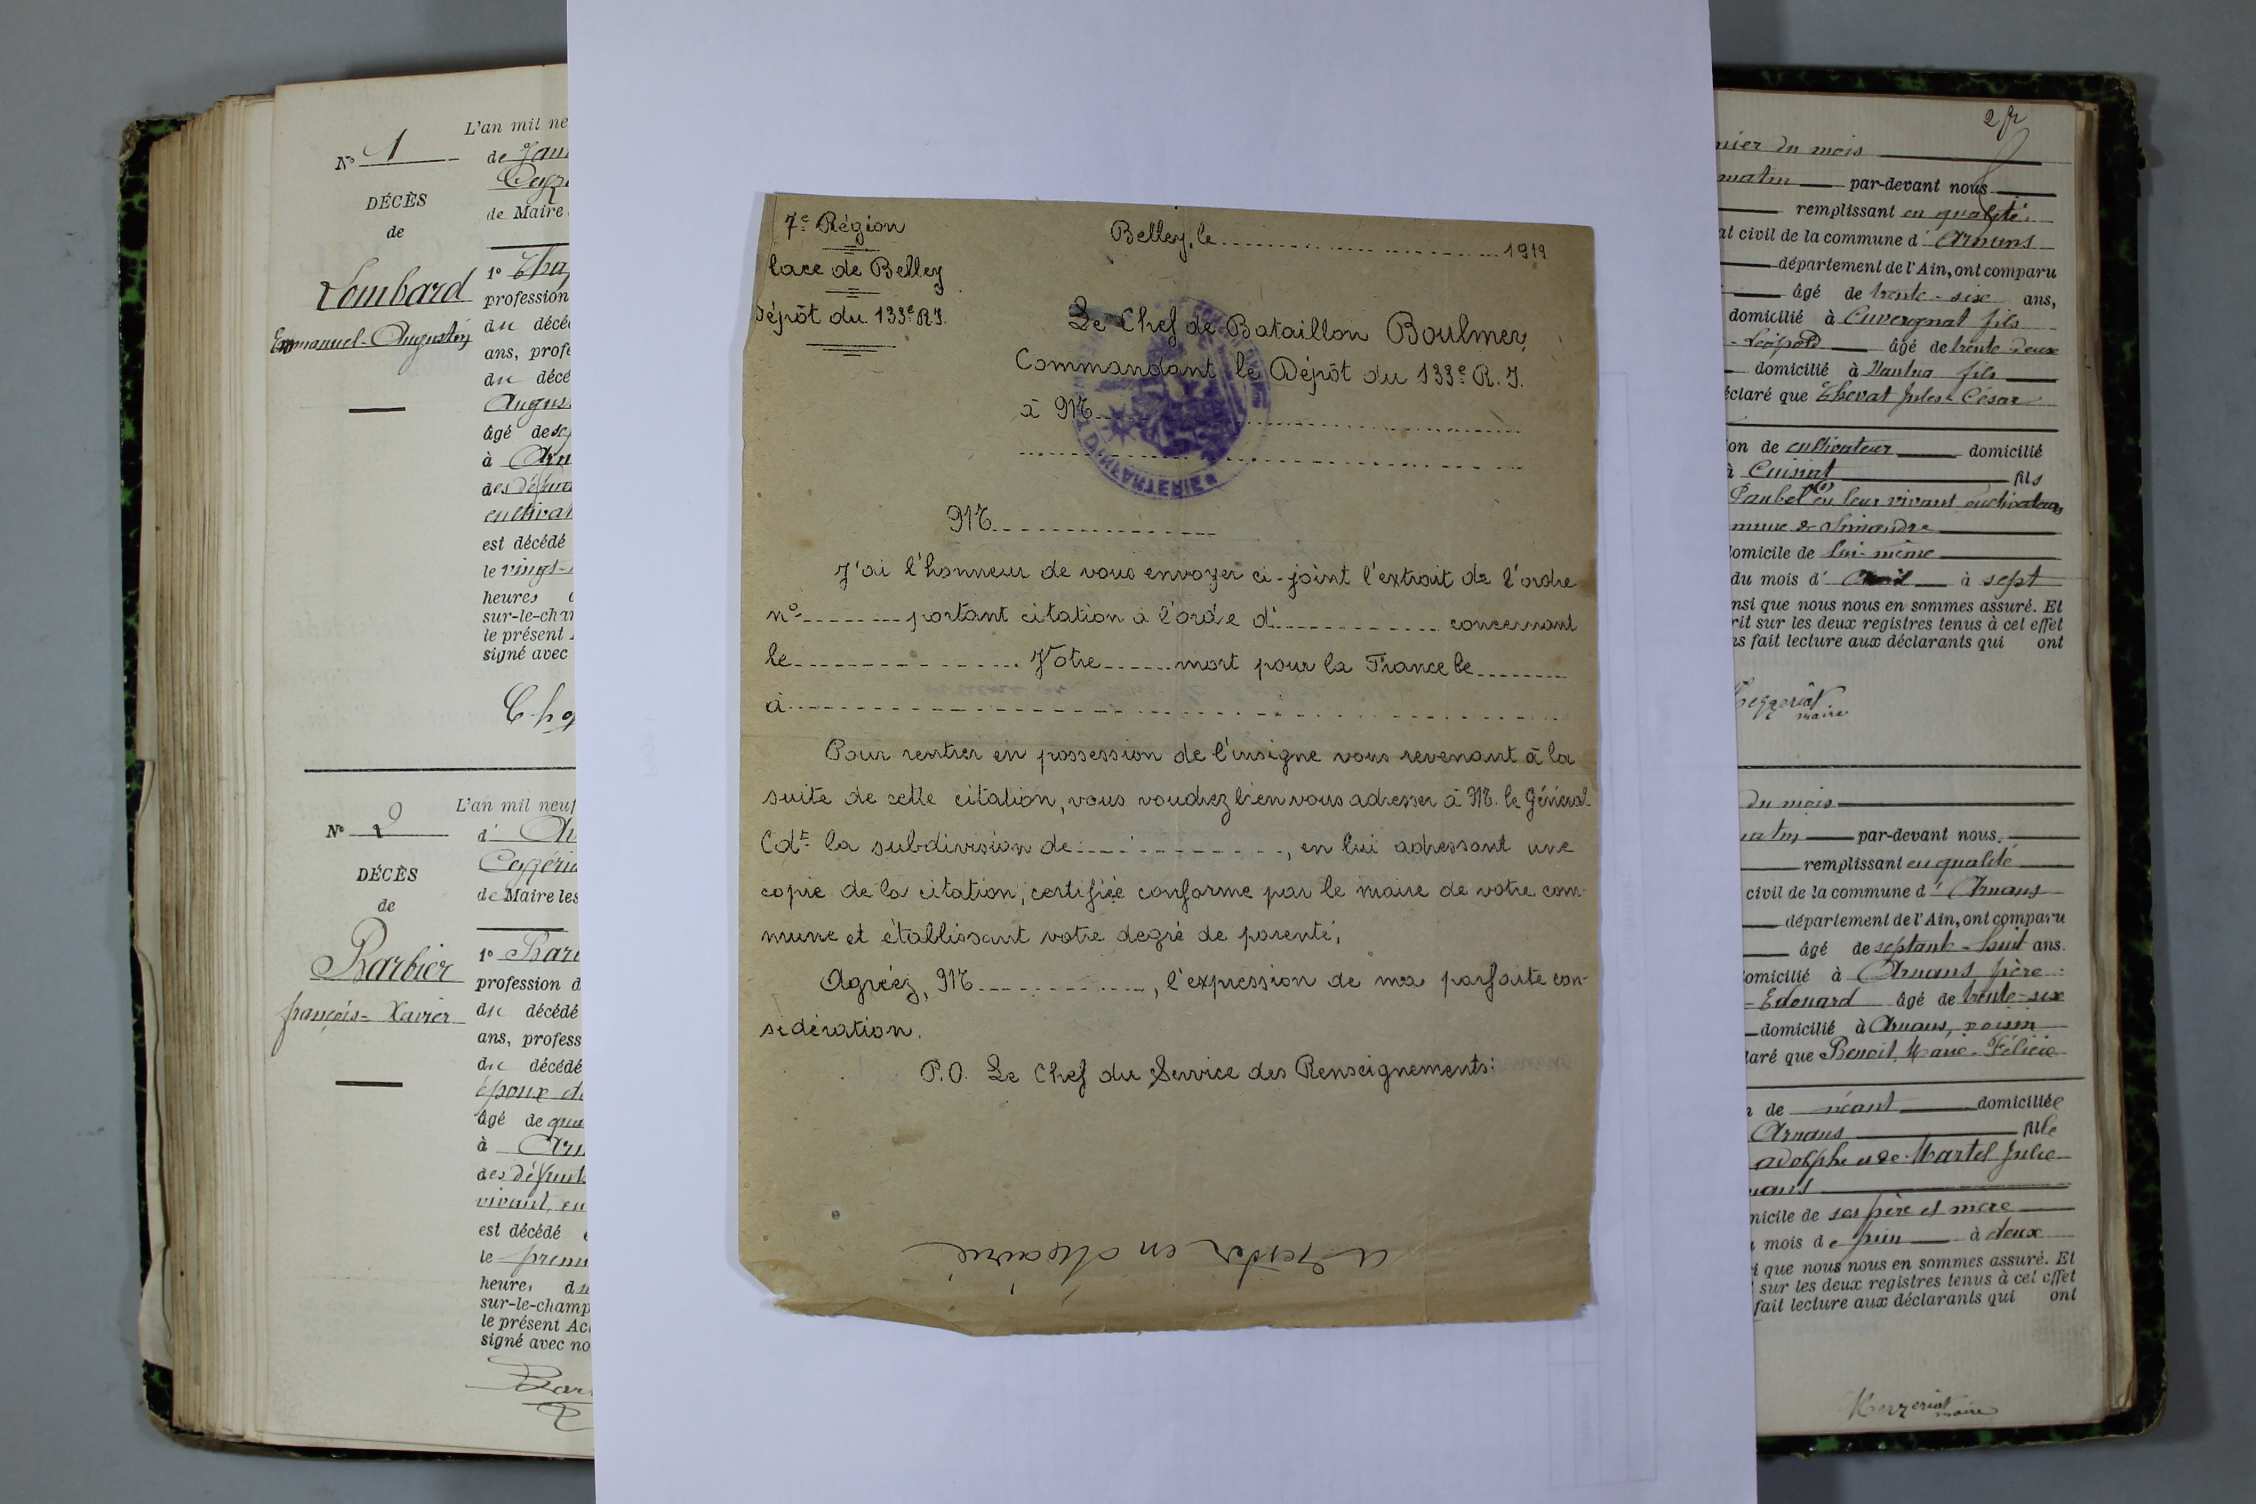 N° 1
DÉCÈS
de
Lombard
Emmanuel-Augustin
L'an mil ne
de Jan
de Maire
1°
profession
du décé
ans, profe
du décé
Augus
âgé de
à Arn
des défun
cultivat
est décédé
le vingt-
heures
sur-le-cha
le présent
signé avec
N° 2
DÉCÈS
de
Barbier
françois-Xavier
L'an mil neuf
d'
de Maire les
1° Bar
profession d
du décédé
ans, profess
du décédé
époux d
âgé de qua
à Arn
des défunts
vivant, cu
est décédé
le premi
heures du
sur-le-champ
le présent Ac
signé avec no
Bar
7e Région
lace de Belley
Dépôt du 133e R.I.
Belley, le 1919
Le Chef de Bataillon Boulmer,
Commandant le Dépôt du 133e R.I.
à M
D'INFANTERIE
M
J'ai l'honneur de vous envoyer ci-joint l'extrait de l'ordre
n° portant citation à l'ordre d' concernant
le Votre mort pour la France le
à
Pour rentrer en possession de l'insigne vous revenant à la
suite de cette citation, vous voudrez bien vous adresser à M. le Général
Cdt la subdivision de , en lui adressant une
copie de la citation, certifiée conforme par le maire de votre com-
mune et établissant votre degré de parenté.
Agréez, M , l'expression de ma parfaite con-
sidération.
P.O. Le Chef du Service des Renseignements:
A rester en Mairie
2 fr
nier du mois
matin par-devant nous
remplissant en qualité
at civil de la commune d' Arnans
département de l'Ain, ont comparu
âgé de trente-six ans,
domicilié à Cuvergnat fils
Léopold âgé de trente-deux
domicilié à Nantua fils
éclaré que Thevat Jules-César
on de cultivateur domicilié
à Cuisiat fils
en leur vivant cultivateurs
mune de Simandre
domicile de lui-même
du mois d' à sept
nsi que nous nous en sommes assuré. Et
rit sur les deux registres tenus à cet effet
ns fait lecture aux déclarants qui ont
maire
du mois
matin par-devant nous,
remplissant en qualité
civil de la commune d' Arnans
département de l'Ain, ont comparu
âgé de septante-huit ans.
omicilié à Arnans père
Edouard âgé de trente-six
domicilié à Arnans, voisin
laré que Benoit, Marie-Félicie
n de néant domiciliée
Arnans fille
adolphe et de Martel Julie
nans
micile de ses père et mère
mois de juin à deux
i que nous nous en sommes assuré. Et
sur les deux registres tenus à cet effet
fait lecture aux déclarants qui ont
maire